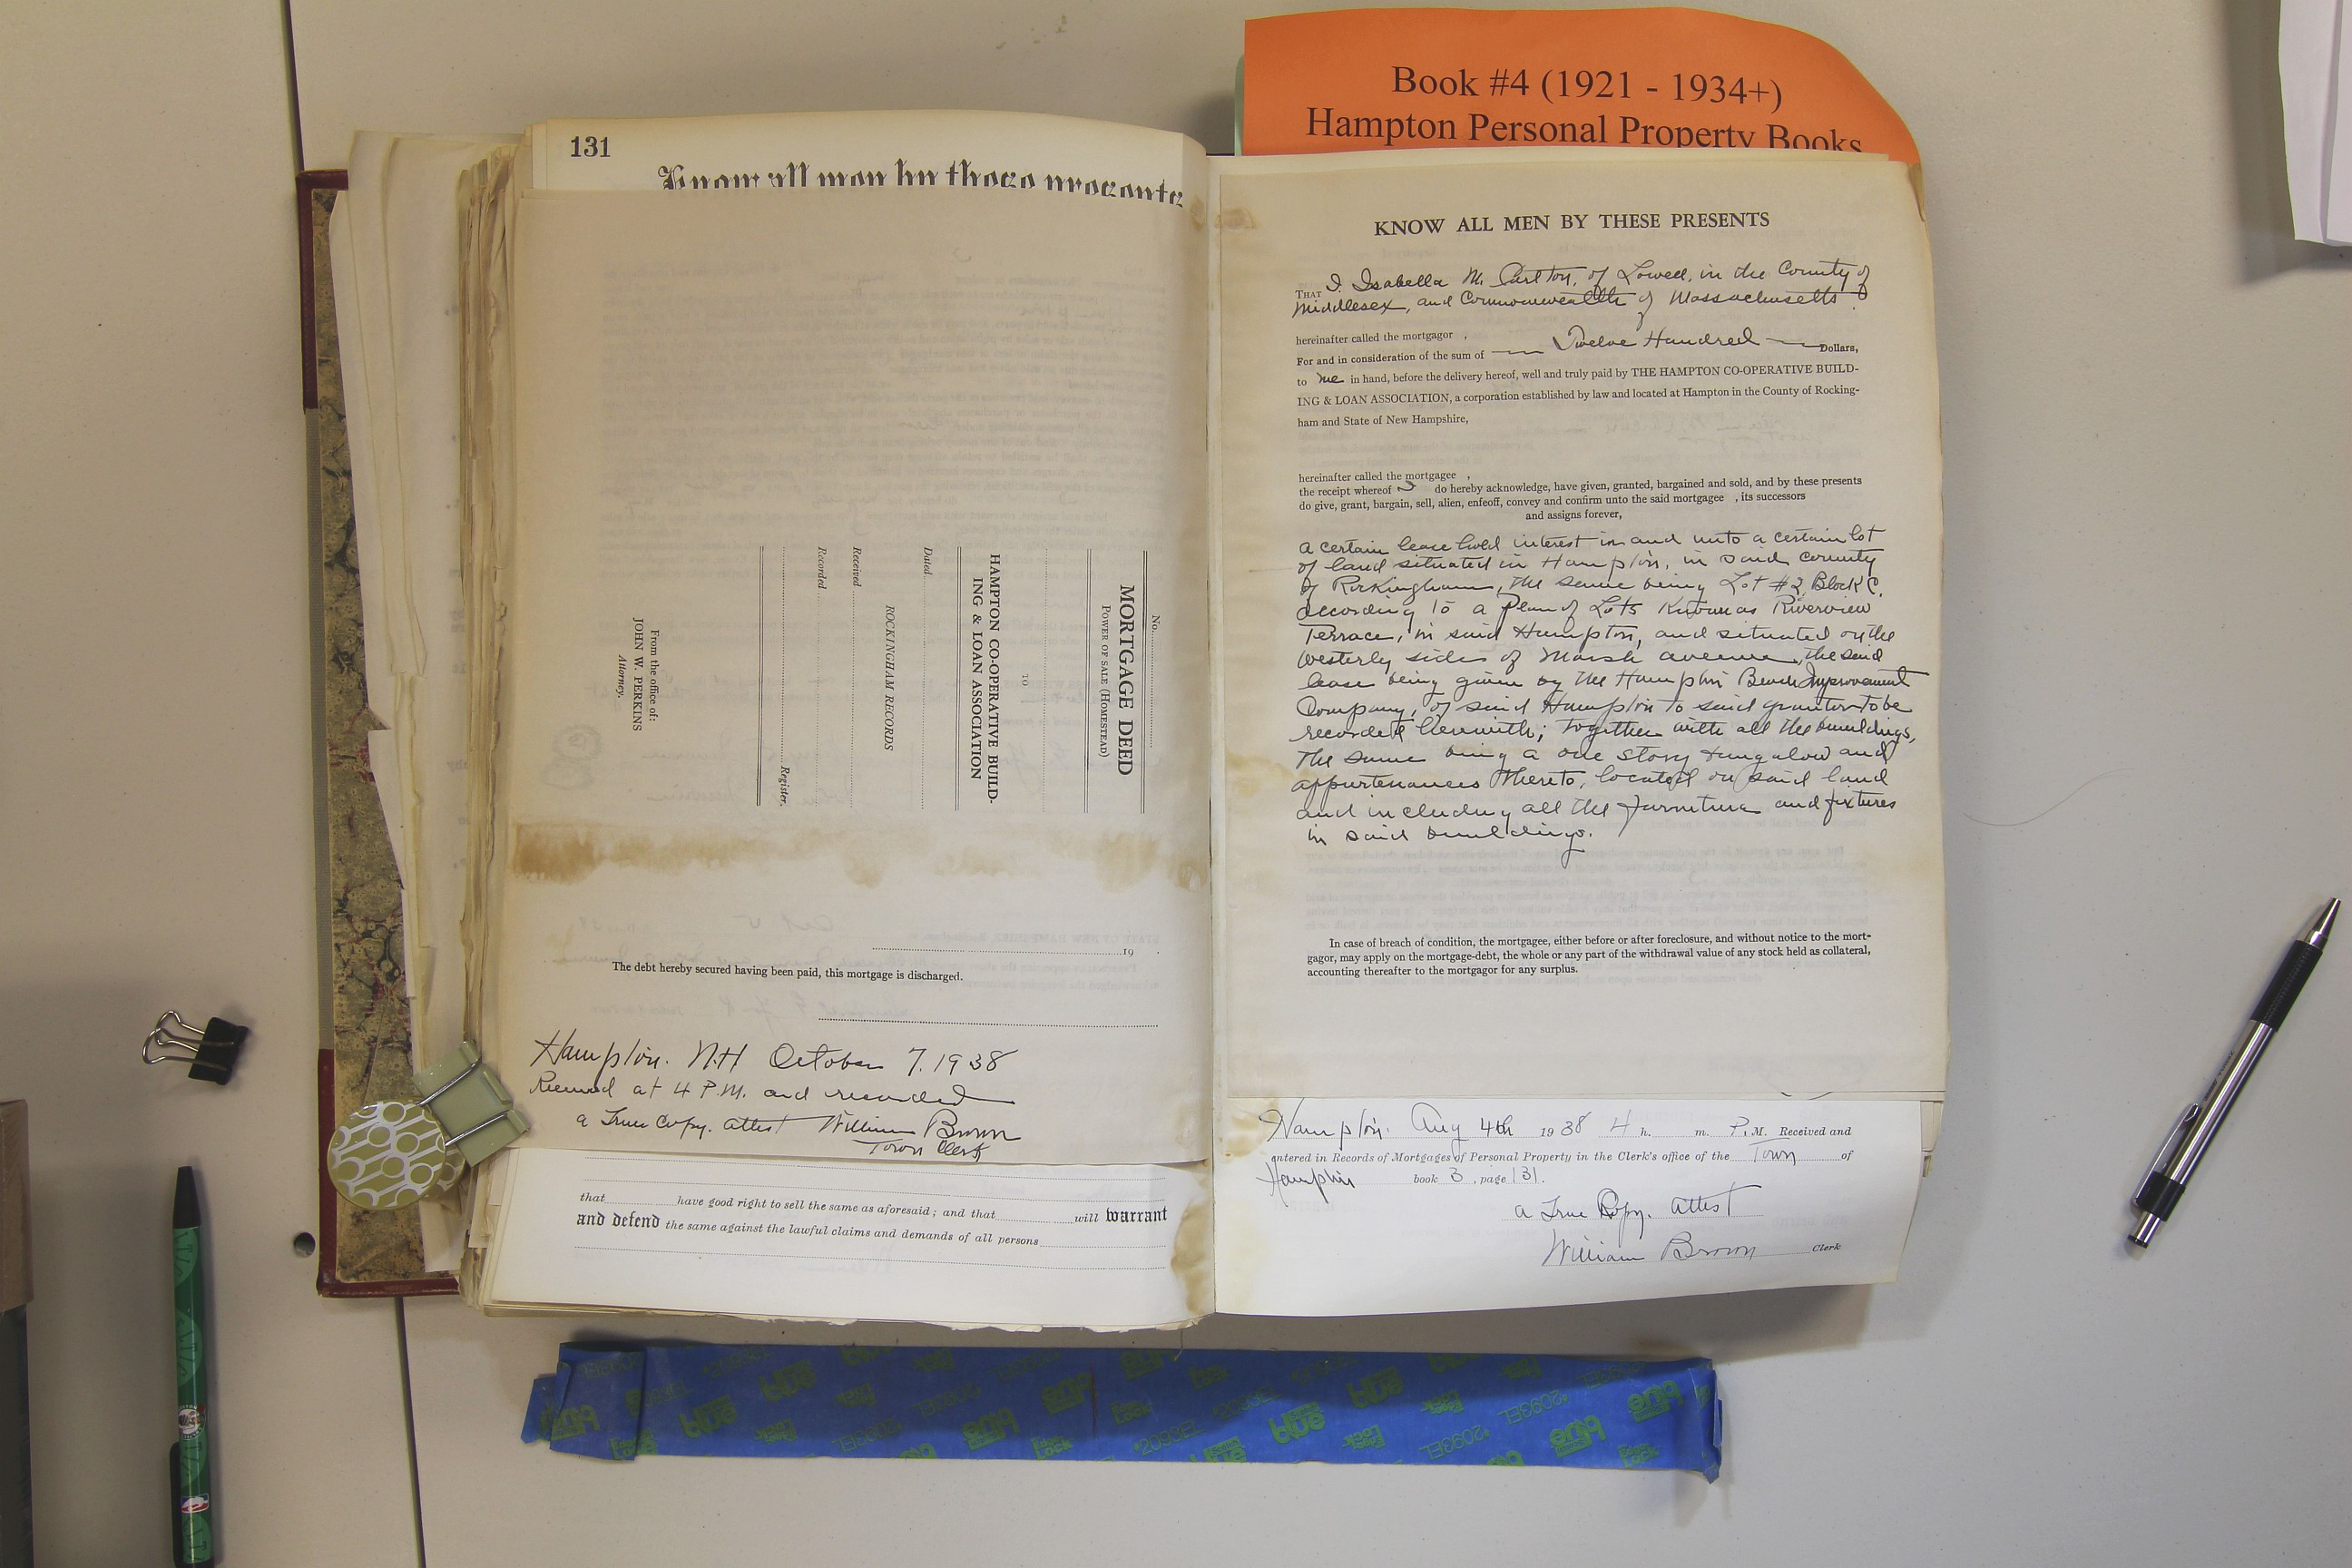 Book #4 (1921 - 1934+)
Hampton Personal Property Books
131
Know all men by these presents
No.
MORTGAGE DEED
POWER OF SALE (HOMESTEAD)
TO
HAMPTON CO-OPERATIVE BUILD-
ING & LOAN ASSOCIATION
Dated
ROCKINGHAM RECORDS
Received
Recorded
Register.
From the office of:
JOHN W. PERKINS
Attorney.
19 .
The debt hereby secured having been paid, this mortgage is discharged.
Hampton. N.H October 7. 1938
Received at 4 P.M. and recorded
a True Copy. attest William Brown
Town Clerk
that have good right to sell the same as aforesaid; and that will warrant
and defend the same against the lawful claims and demands of all persons
KNOW ALL MEN BY THESE PRESENTS
THAT I, Isabella M. Carlton, of Lowell, in the County of
Middlesex, and Commonwealth of Massachusetts
hereinafter called the mortgagor ,
For and in consideration of the sum of Twelve Hundred Dollars,
to me in hand, before the delivery hereof, well and truly paid by THE HAMPTON CO-OPERATIVE BUILD-
ING & LOAN ASSOCIATION, a corporation established by law and located at Hampton in the County of Rocking-
ham and State of New Hampshire,
hereinafter called the mortgagee ,
the receipt whereof I do hereby acknowledge, have given, granted, bargained and sold, and by these presents
do give, grant, bargain, sell, alien, enfeoff, convey and confirm unto the said mortgagee , its successors
and assigns forever,
a certain lease hold interest in and unto a certain lot
of land situated in Hampton, in said county
of Rockingham, the same being Lot #3, Block C.
according to a plan of Lots Known as Riverview
Terrace, in said Hampton, and situated on the
westerly side of Marsh avenue, the said
lease being given by the Hampton Beach Improvement
Company, of said Hampton to said grantor to be
recorded herewith; together with all the buildings,
the same being a one story bungalow and
appurtenances thereto, located on said land
and including all the furniture and fixtures
in said buildings.
In case of breach of condition, the mortgagee, either before or after foreclosure, and without notice to the mort-
gagor, may apply on the mortgage-debt, the whole or any part of the withdrawal value of any stock held as collateral,
accounting thereafter to the mortgagor for any surplus.
Hampton. Aug 4th 1938 4 h. m. P. M. Received and
entered in Records of Mortgages of Personal Property in the Clerk's office of the Town of
Hampton book 3, page 131.
a True Copy. Attest
William Brown Clerk